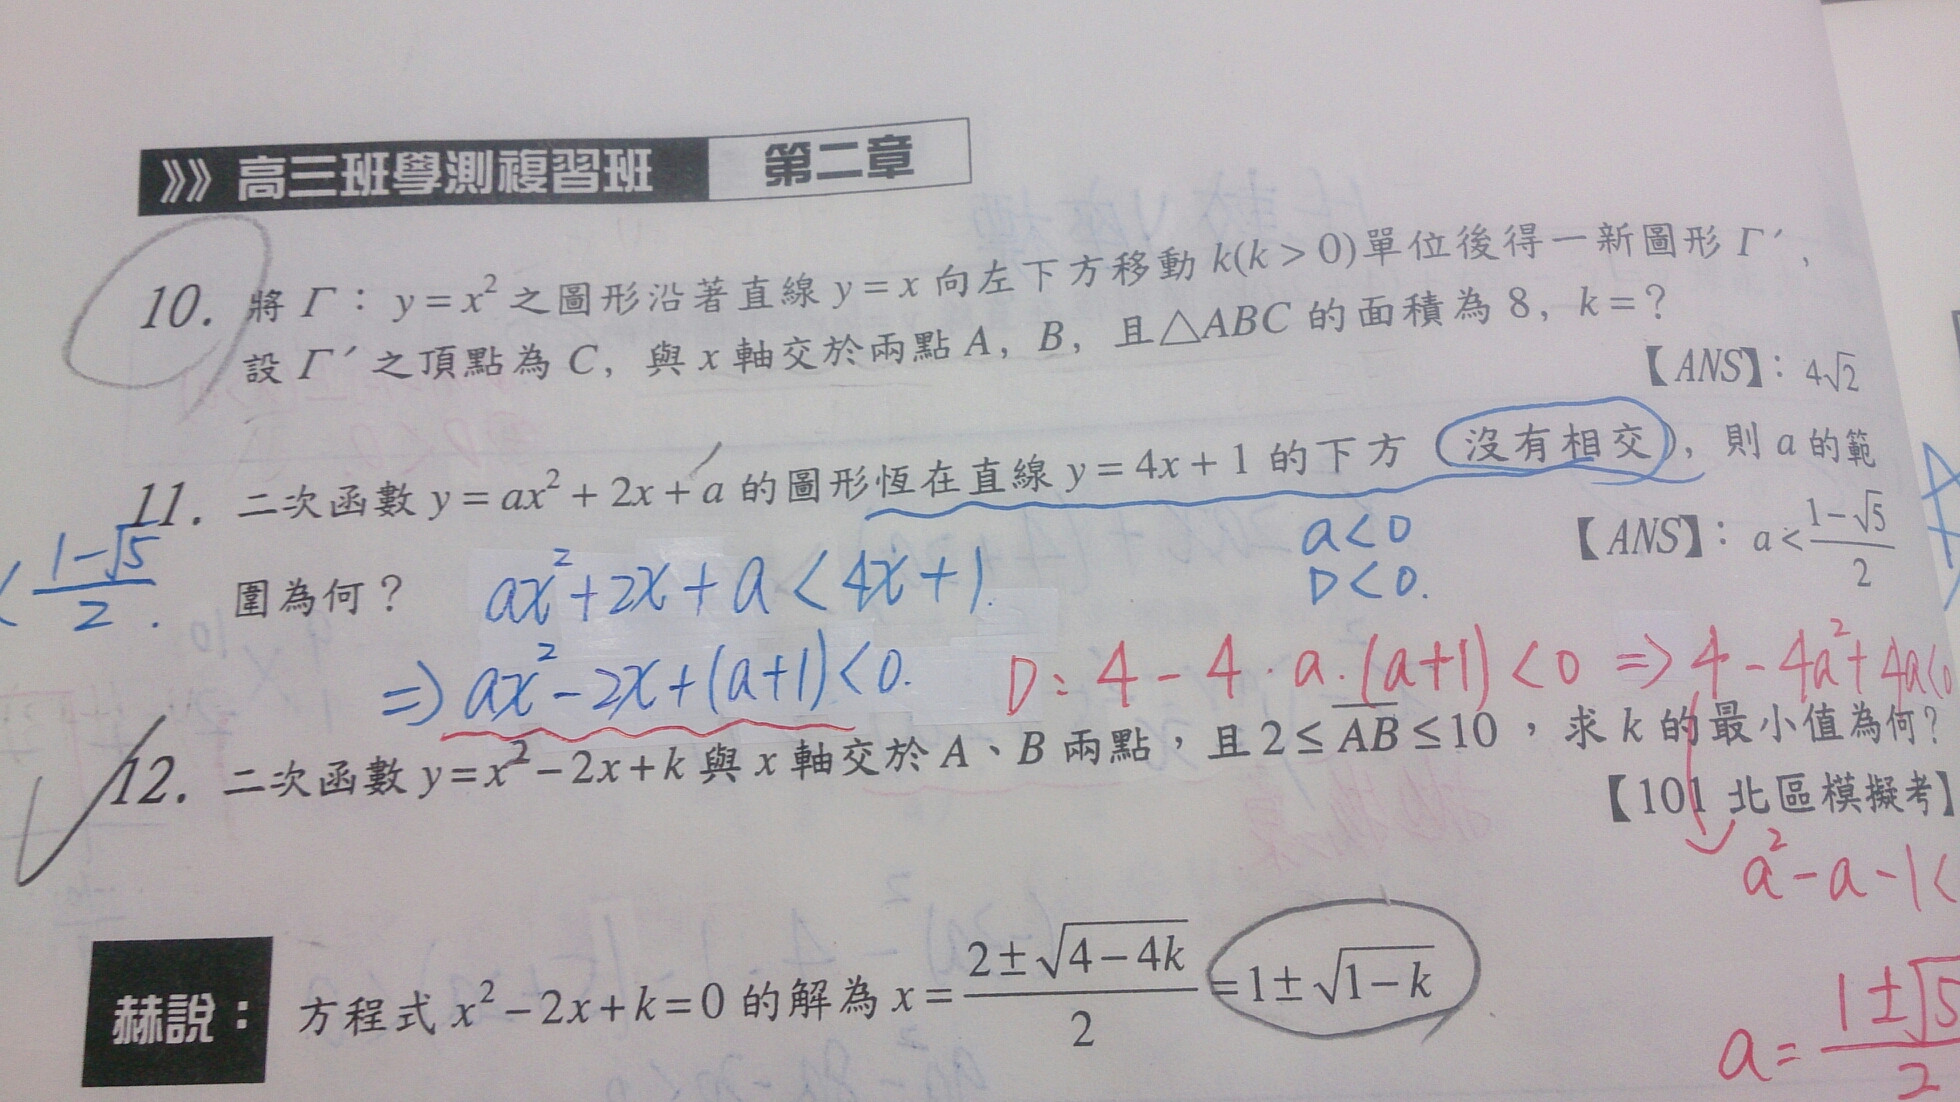 》》高三班學測複習班 第二章
10. 將 Γ：y=x² 之圖形沿著直線 y=x 向左下方移動 k(k>0)單位後得一新圖形 Γ′，
設 Γ′ 之頂點為 C，與 x 軸交於兩點 A，B，且△ABC 的面積為 8，k=？
【ANS】：4√2
11. 二次函數 y=ax²+2x+a 的圖形恆在直線 y=4x+1 的下方（沒有相交），則 a 的範
圍為何？
【ANS】：a<(1-√5)/2
a<0
D<0.
<(1-√5)/2.
ax²+2x+a<4x+1.
⇒ax²-2x+(a+1)<0.
D:4-4·a·(a+1)<0 ⇒4-4a²+4a<0
12. 二次函數 y=x²-2x+k 與 x 軸交於 A、B 兩點，且 2≤A̅B̅≤10，求 k 的最小值為何？
【101 北區模擬考】
a²-a-1<
赫說： 方程式 x²-2x+k=0 的解為 x=(2±√(4-4k))/2=1±√(1-k)
a=(1±√5)/2